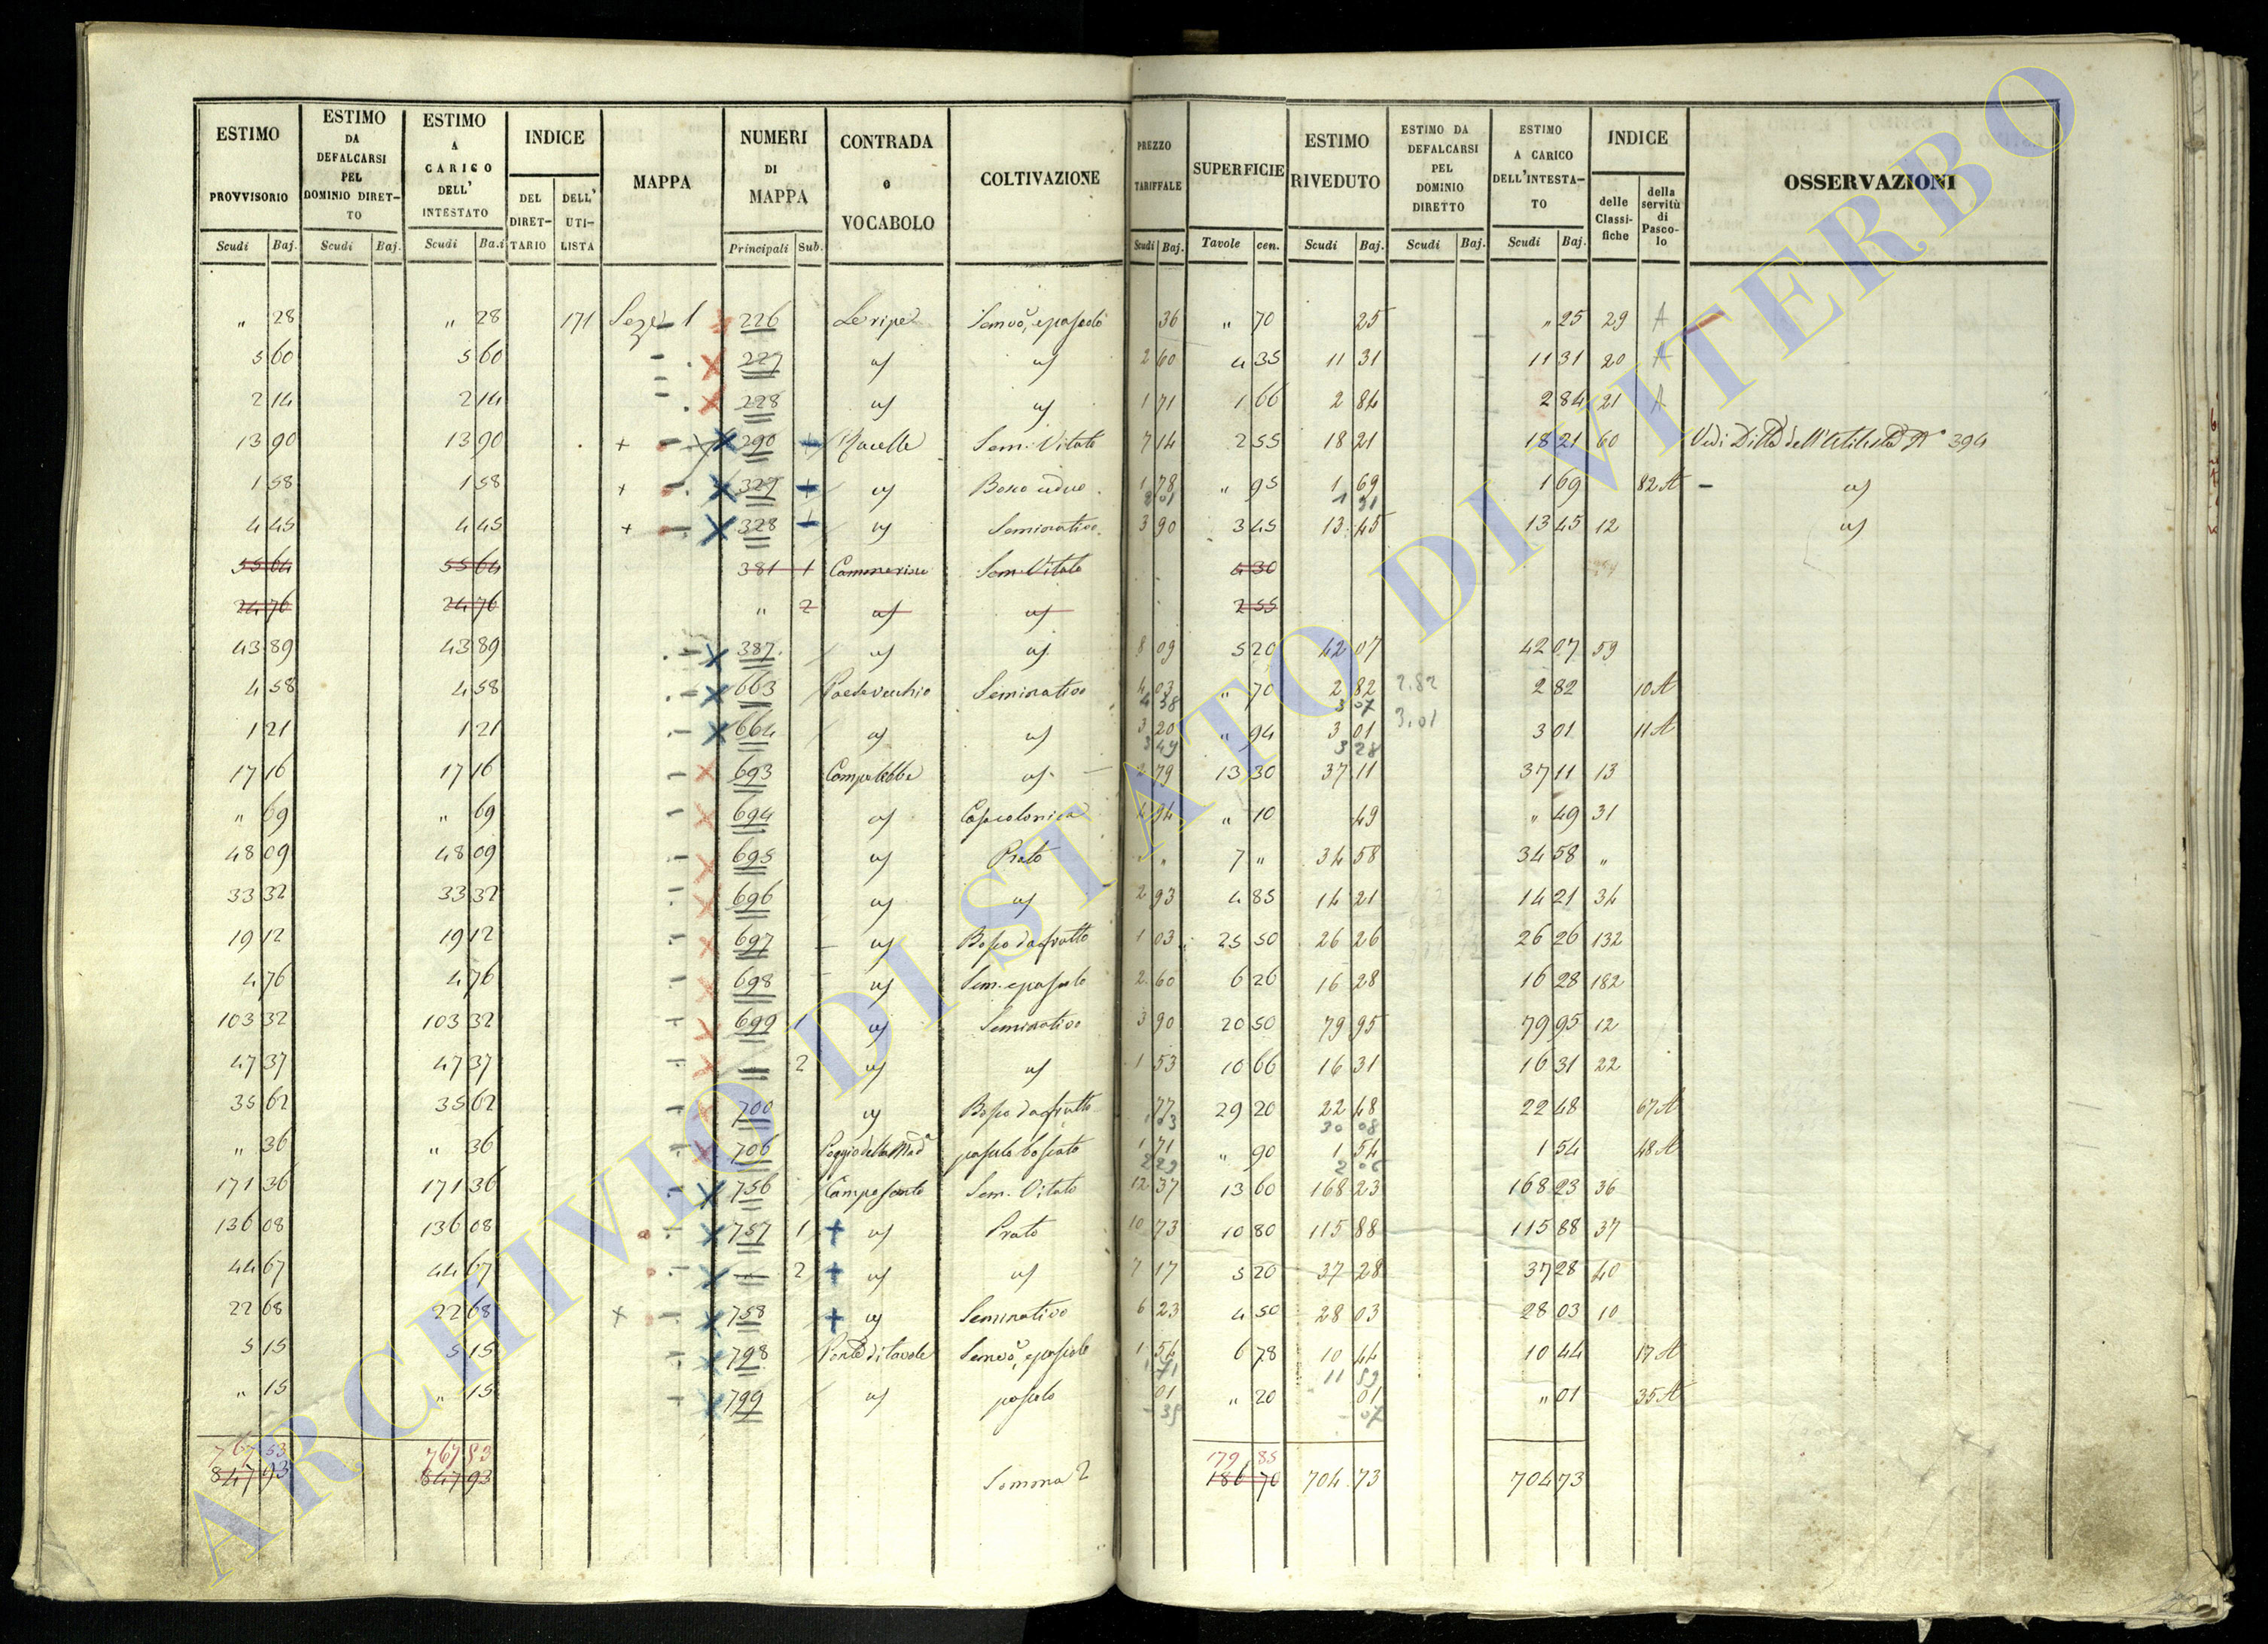 ESTIMO PROVVISORIO Scudi Baj. ESTIMO DA DEFALCARSI PEL DOMINIO DIRETTO Scudi Baj. ESTIMO A CARICO DELL' INTESTATO Scudi Baj. INDICE DEL DIRETTARIO DELL' UTILISTA MAPPA NUMERI DI MAPPA Principali Sub. CONTRADA o VOCABOLO COLTIVAZIONE PREZZO TARIFFALE Scudi Baj. SUPERFICIE Tavole cen. ESTIMO RIVEDUTO Scudi Baj. ESTIMO DA DEFALCARSI PEL DOMINIO DIRETTO Scudi Baj. ESTIMO A CARICO DELL'INTESTATO Scudi Baj. INDICE delle Classifiche della servitù di Pascolo OSSERVAZIONI
" 28 " 28 171 1 226 Le ripe 36 " 70 25 " 25 29 A
5 60 5 60 227 2 60 4 35 11 31 11 31 20 A
2 14 2 14 228 1 71 1 66 2 84 2 84 21 A
13 90 13 90 + 290 + Sem. Vitato 7 14 2 55 18 21 18 21 60 Vedi Ditta dell'Utilista N° 394
1 58 1 58 + 327 + Bosco ceduo 1 78 " 95 1 69 1 69 82 A
1 31
4 45 4 45 + 328 Seminativo 3 90 3 45 13 45 13 45 12
55 64 55 64 381 1 Sem. Vitato 4 30
24 76 24 76 " 2 2 55
43 89 43 89 387 8 09 5 20 42 07 42 07 59
4 58 4 58 663 Seminativo 4 03 " 70 2 82 2.82 2 82 10 A
4 38 3 07
1 21 1 21 664 3 20 " 94 3 01 3.01 3 01 11 A
3 49 3 28
17 16 17 16 693 2 79 13 30 37 11 37 11 13
" 69 " 69 694 Casa colonica 4 94 " 10 49 " 49 31
48 09 48 09 695 Prato " 7 " 34 58 34 58 "
33 32 33 32 696 2 93 4 85 14 21 14 21 34
19 12 19 12 697 Bosco da frutto 1 03 25 50 26 26 26 26 132
4 76 4 76 698 Sem. e pascolo 2 60 6 26 16 28 16 28 182
103 32 103 32 699 1 Seminativo 3 90 20 50 79 95 79 95 12
47 37 47 37 2 1 53 10 66 16 31 16 31 22
35 62 35 62 700 Bosco da frutto 77 29 20 22 48 22 48 67 A
1 03 30 08
" 36 " 36 706 Poggio della Mada pascolo boscato 1 71 " 90 1 54 1 54 48 A
2 29 2 06
171 36 171 36 756 Camposanto Sem. Vitato 12 37 13 60 168 23 168 23 36
136 08 136 08 757 1 + Prato 10 73 10 80 115 88 115 88 37
44 67 44 67 2 + 7 17 5 20 37 28 37 28 40
22 68 22 68 + 758 + Seminativo 6 23 4 50 28 03 28 03 10
5 15 5 15 798 1 54 6 78 10 44 10 44 17 A
1 71 11 59
" 15 " 15 799 pascolo 01 " 20 01 " 01 35 A
07
767 53 767 53 179 85
847 93 847 93 Somma 186 70 704 73 704 73
ARCHIVIO DI STATO DI VITERBO